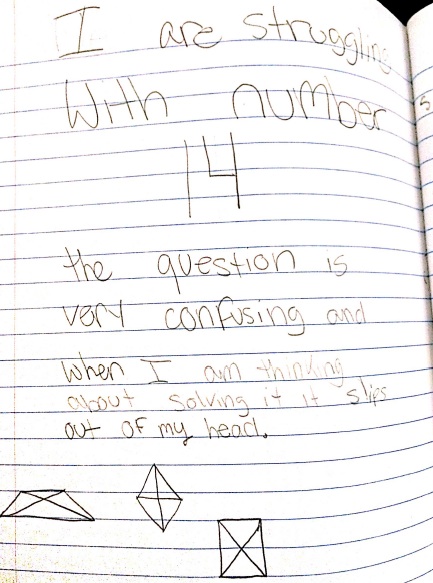 I are struggling
With number
14
the question is
very confusing and
when I am thinking
about solving it it slips
out of my head.